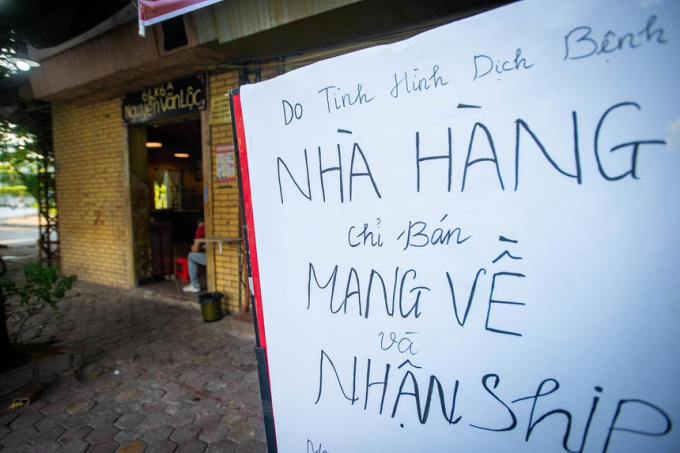 Do Tình Hình Dịch Bệnh
NHÀ HÀNG
chỉ Bán
MANG VỀ
và
NHẬN Ship
NGUYỄN VĂN LỘC